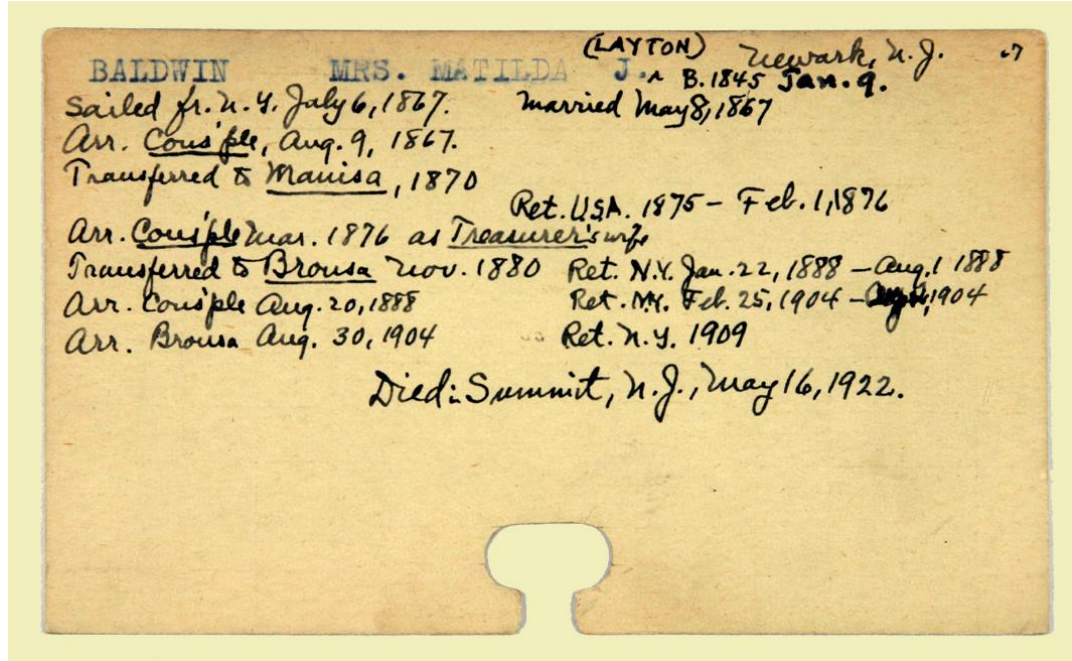 (LAYTON) Newark, N.J.
BALDWIN MRS. MATILDA J. ^ B. 1845 Jan. 9.
Sailed fr. N.Y. July 6, 1867. Married May 8, 1867
Arr. Cons'ple, Aug. 9, 1867.
Transferred to Manisa, 1870
Ret. U.S.A. 1875 – Feb. 1, 1876
Arr. Cons'ple Mar. 1876 as Treasurer's wife
Transferred to Brousa Nov. 1880 Ret. N.Y. Jan. 22, 1888 – Aug. 1 1888
Arr. Cons'ple Aug. 20, 1888 Ret. N.Y. Feb. 25, 1904 – 1904
Arr. Brousa Aug. 30, 1904 Ret. N.Y. 1909
Died: Summit, N.J., May 16, 1922.